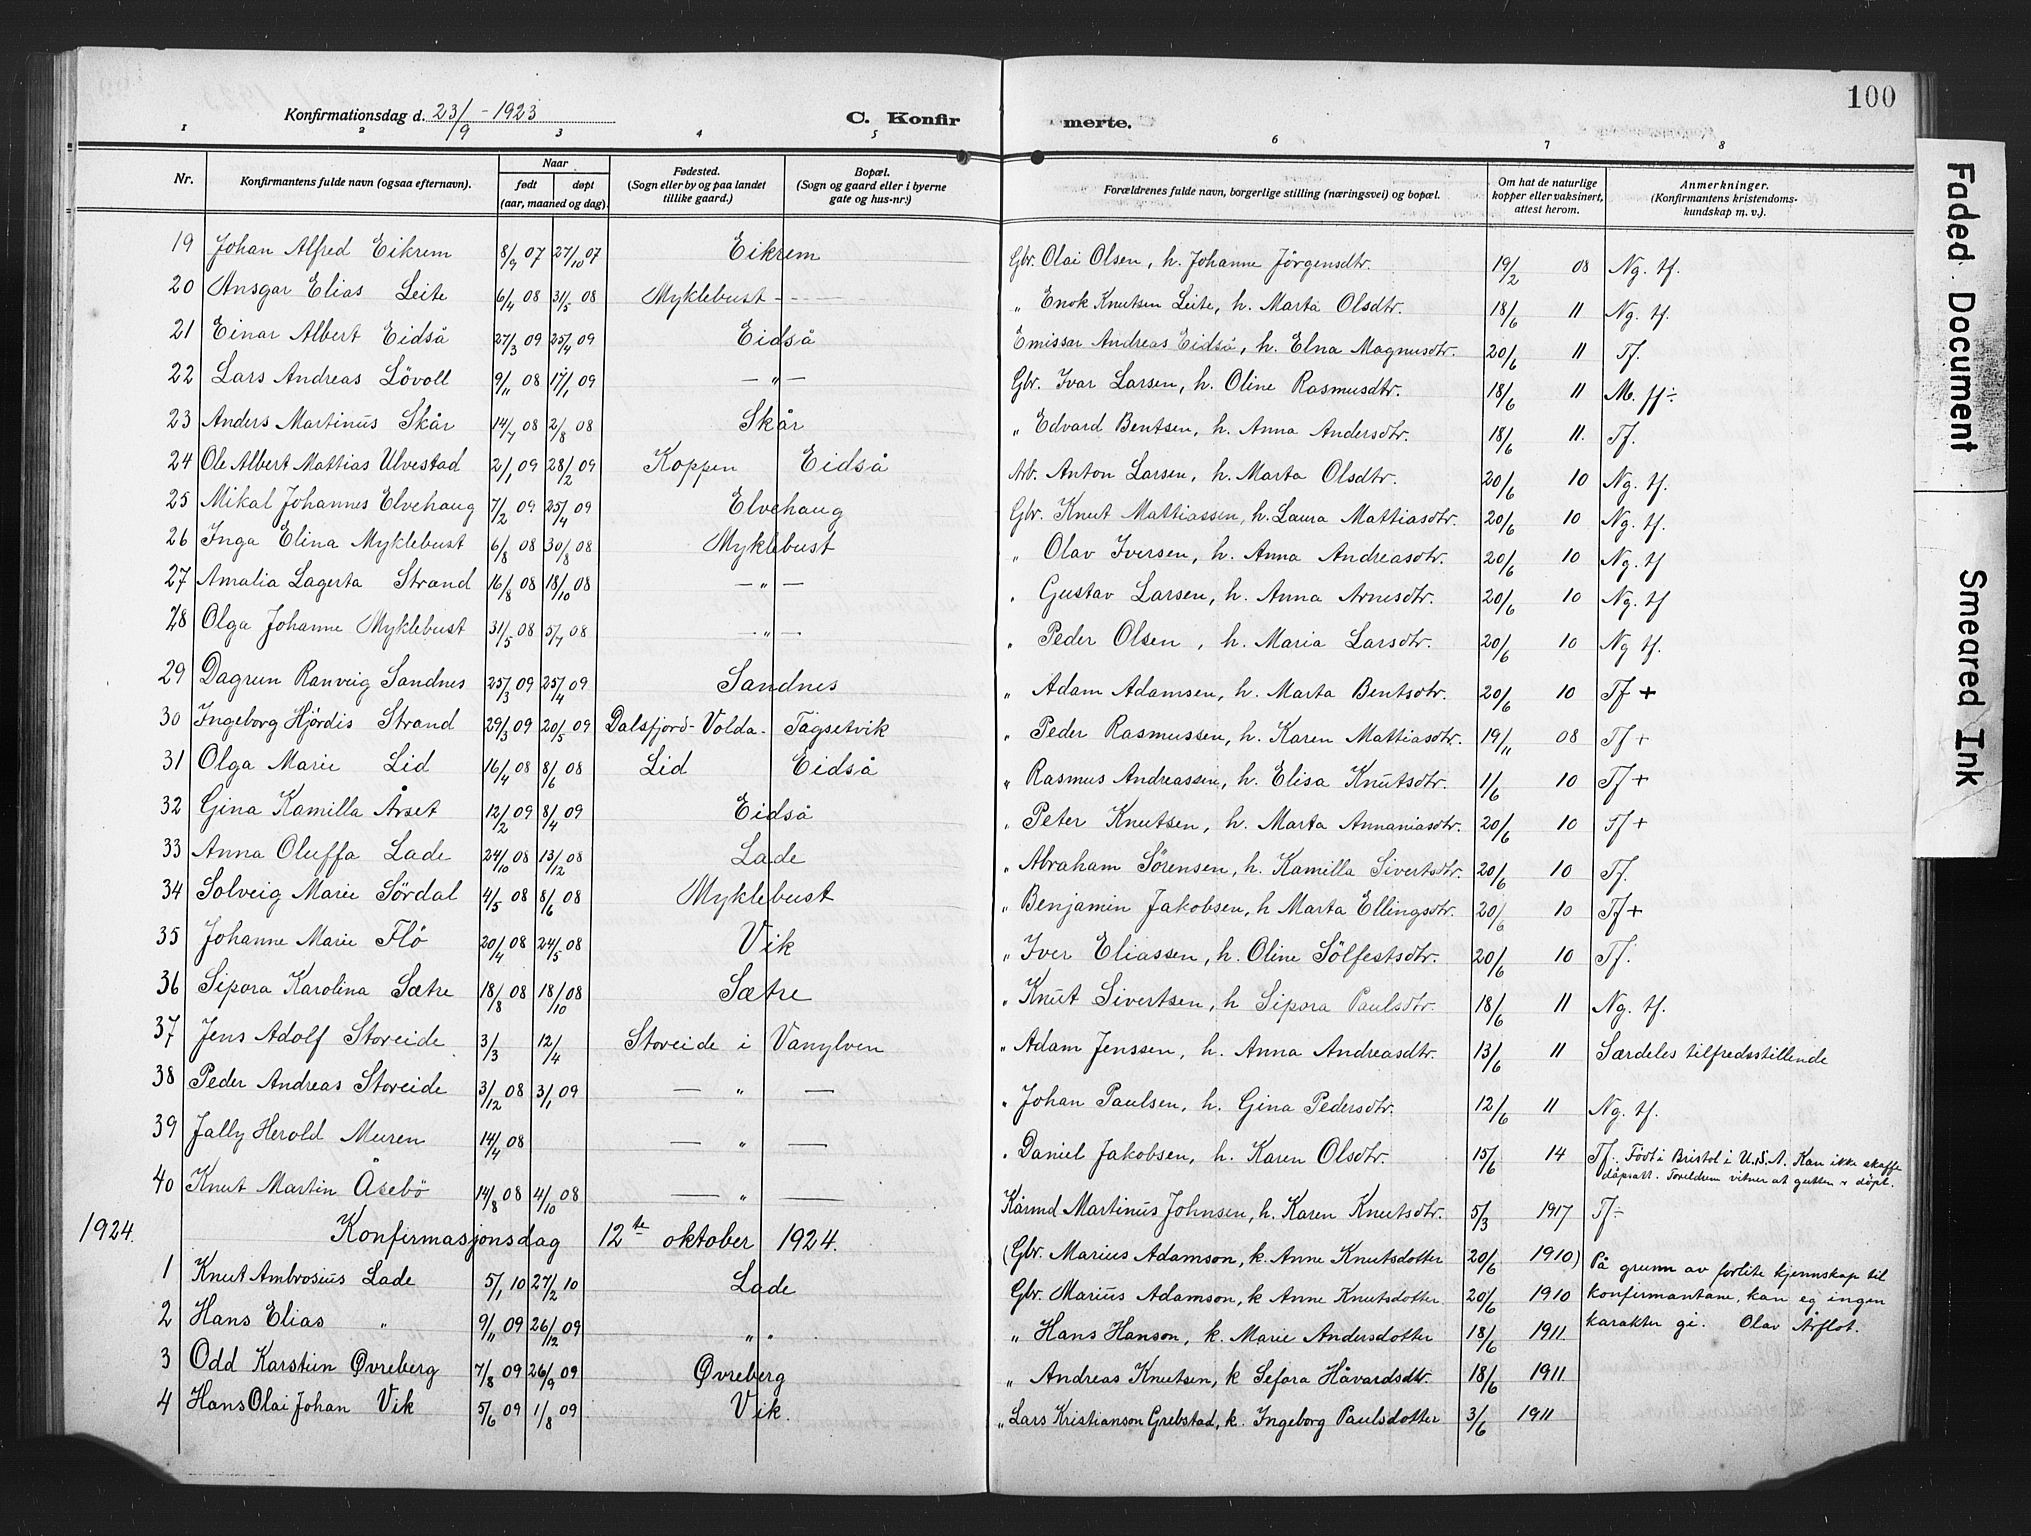 100
Konfirmationsdag d. 23/9 - 1923
C. Konfirmerte.
1 2 3 4 5 6 7 8
Nr. Konfirmantens fulde navn (ogsaa efternavn). Naar født døpt (aar, maaned og dag). Fødested. (Sogn eller by og paa landet tillike gaard.) Bopæl. (Sogn og gaard eller i byerne gate og hus-nr:) Forældrenes fulde navn, borgerlige stilling (næringsvei) og bopæl. Om hat de naturlige kopper eller vaksinert, attest herom. Anmerkninger. (Konfirmantens kristendomskundskap m. v.).
19 Johan Alfred Eikrem 8/9 07 27/10 07 Eikrem Gbr. Olai Olsen, h. Johanne Jörgensdtr. 19/2 08 Ng. tf.
20 Ansgar Elias Leite 6/4 08 31/5 08 Myklebust - - - " Enok Knutsen Leite, h. Marta Olsdtr. 18/6 11 Ng. tf.
21 Einar Albert Eidså 27/3 09 25/4 09 Eidså Emissær Andreas Eidså, h. Elna Magnusdtr. 20/6 11 Tf.
22 Lars Andreas Lövoll 9/11 08 17/1 09 — " — Gbr. Ivar Larsen, h. Oline Rasmusdtr. 18/6 11 M. ff ÷
23 Anders Martinus Skår 14/7 08 2/8 08 Skår " Edvard Bentsen, h. Anna Andersdtr. 18/6 11. Tf.
24 Ole Albert Mattias Ulvestad 2/1 09 28/2 09 Koppen Eidså Arb. Anton Larsen, h. Marta Olsdtr. 20/6 10 Ng. tf.
25 Mikal Johannes Elvehaug 7/2 09 25/4 09 Elvehaug Gbr. Knut Mattiassen, h. Laura Mattiasdtr. 20/6 10 Ng. tf.
26 Inga Elina Myklebust 6/8 08 30/8 08 Myklebust " Olav Iversen, h. Anna Andreasdtr. 20/6 10 Ng. tf
27 Amalia Lagerta Strand 16/8 08 18/10 08 — " — " Gustav Larsen, h. Anna Arnesdtr. 20/6 10 Ng. tf
28 Olga Johanne Myklebust 31/5 08 5/7 08 — " — " Peder Olsen, h. Maria Larsdtr. 20/6 10 Ng tf.
29 Dagrun Ranveig Sandnes 25/3 09 25/4 09 Sandnes " Adam Adamsen, h. Marta Bentsdtr. 20/6 10 Tf +
30 Ingeborg Hjördis Strand 29/3 09 20/5 09 Dalsfjord - Volda. Tågsetvik " Peder Rasmussen, h. Karen Mattiasdtr. 19/11 08 Tf +
31 Olga Marie Lid 16/4 08 8/6 08 Lid Eidså " Rasmus Andreassen, h. Elisa Knutsdtr. 1/6 10 Tf +
32 Gina Kamilla Årset 12/2 09 8/4 09 Eidså " Peter Knutsen, h. Marta Annaniasdtr. 20/6 10 Tf +
33 Anna Oluffa Lade 24/10 08 13/12 08 Lade " Abraham Sörensen, h. Kamilla Sivertsdtr. 20/6 10 Tf.
34 Solveig Marie Sördal 4/5 08 8/6 08 Myklebust " Benjamin Jakobsen, h Marta Ellingsdtr. 20/6 10 Tf +
35 Johanne Marie Flö 20/4 08 24/5 08 Vik " Iver Eliassen, h. Oline Sölfestsdtr. 20/6 10 Tf.
36 Sipora Karolina Sætre 18/8 08 18/10 08 Sætre " Knut Sivertsen, h Sipora Paulsdtr. 18/6 11 Ng. tf.
37 Jens Adolf Storeide 3/3 12/4 Storeide i Vanylven " Adam Jenssen, h. Anna Andreasdtr. 13/6 11 Særdeles tilfredsstillende
38 Peder Andreas Storeide 3/12 08 3/1 09 — " — " Johan Paulsen, h. Gina Pedersdtr. 12/6 11 Ng. tf.
39 Jally Herold Muren 14/4 08 — " — " Daniel Jakobsen, h. Karen Olsdtr. 15/6 14 Tf. Född i Bristol i U.S.A. Kan ikke skaffe
dåpsatt. Foreldrene vitner at gutten er döpt.
40 Knut Martin Åsebö 14/8 08 4/10 08 — " — Kårmd Martinus Johnsen, h. Karen Knutsdtr. 5/3 1917 Tf ÷
1924. Konfirmasjonsdag 12te oktober 1924.
(Gbr. Marius Adamson, k. Anne Knutsdotter 20/6 1910)
1 Knut Ambrosius Lade 5/1 10 27/2 10 Lade Gbr. Marius Adamson, k Anne Knutsdotter 20/6 1910 På grunn av forlite kjennskap til
2 Hans Elias " 9/11 09 26/12 09 " " " Hans Hanson, k. Marie Andersdotter 18/6 1911 konfirmantane, kan eg ingen
karakter gi. Olav Årflot.
3 Odd Karstein Øvreberg 7/8 09 26/9 09 Øvreberg " Andreas Knutsen, k Sefora Håvardsdtr. 18/6 1911
4 Hans Olai Johan Vik 5/6 09 1/8 09 Vik. " Lars Kristianson Grebstad, k. Ingeborg Paulsdotter 3/6 1911
Faded Document
Smeared Ink